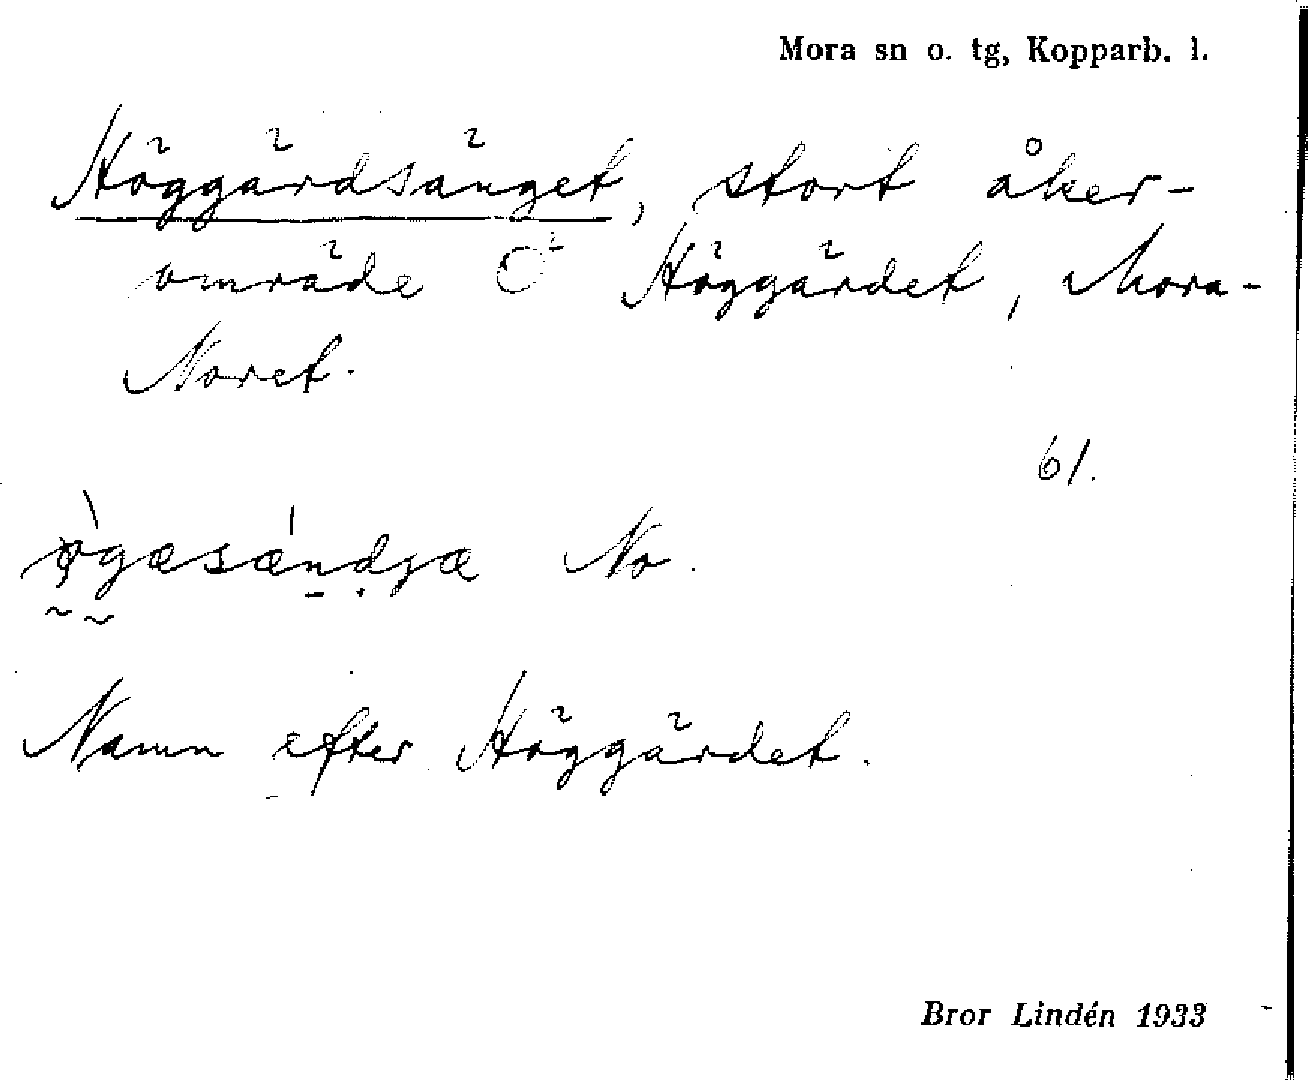 Mora sn o. tg, Kopparb. l.
Höggårdsänget, stort åker-
område Ö Höggårdet, Mora-
Noret.
61.
No.
Namn efter Höggårdet.
Bror Lindén 1933